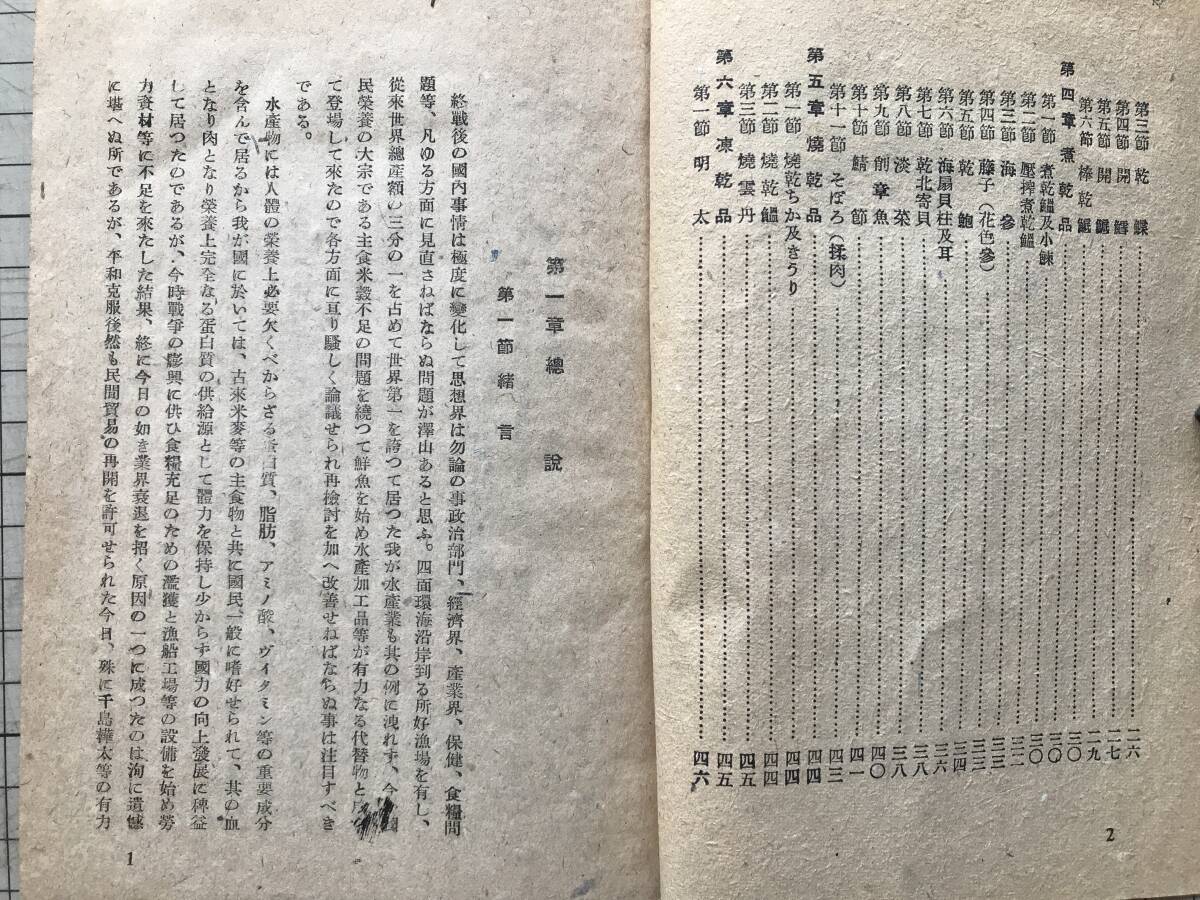 第三節 乾鰈 二六
第四節 開鱈 二七
第五節 開鱈 二九
第六節 棒乾鱈 二九
第四章 煮乾品 三〇
第一節 煮乾鰮及小鰊 三〇
第二節 壓搾煮乾鰮 三〇
第三節 海參 三二
第四節 藤子(花色參) 三三
第五節 乾鮑 三四
第六節 海扇貝柱及耳 三六
第七節 乾北寄貝 三八
第八節 淡菜 三八
第九節 削章魚 四〇
第十節 鯖節 四一
第十一節 そぼろ(揉肉) 四三
第五章 燒乾品 四四
第一節 燒乾ちか及きうり 四四
第二節 燒乾鰮 四四
第三節 燒雲丹 四五
第六章 凍乾品 四五
第一節 明太 四六
2
第一章 總說
第一節 緒言
終戰後の國內事情は極度に變化して思想界は勿論の事政治部門、經濟界、產業界、保健、食糧問
題等、凡ゆる方面に見直さねばならぬ問題が澤山あると思ふ。四面環海沿岸到る所好漁場を有し、
從來世界總產額の三分の一を占めて世界第一を誇つて居つた我が水產業も其の例に洩れず、今 國
民榮養の大宗である主食米穀不足の問題を繞つて鮮魚を始め水產加工品等が有力なる代替物と
て登場して來たので各方面に亘り騷しく論議せられ再檢討を加へ改善せねばならぬ事は注目すべき
である。
水產物には人體の榮養上必要欠くべからざる蛋白質、脂肪、アミノ酸、ヴイタミン等の重要成分
を含んで居るから我が國に於いては、古來米麥等の主食物と共に國民一般に嗜好せられて、其の血
となり肉となり榮養上完全なる蛋白質の供給源として體力を保持し少からず國力の向上發展に裨益
して居つたのであるが、今時戰爭の膨興に供ひ食糧充足のための濫獲と漁船工場等の設備を始め勞
力資材等に不足を來たした結果、終に今日の如き業界衰退を招く原因の一つに成つたのは洵に遺憾
に堪へぬ所であるが、平和克服後然も民間貿易の再開を許可せられた今日、殊に千島樺太等の有力
1